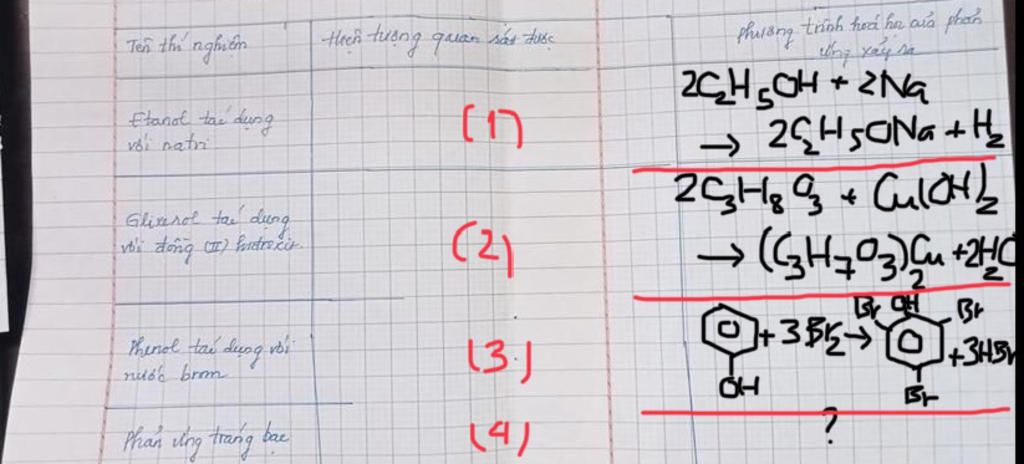 Tên thí nghiệm
Hiện tượng quan sát được
phương trình hoá học của phản
ứng xảy ra
Etanol tác dụng
với natri
(1)
2C₂H₅OH + 2Na
→ 2C₂H₅ONa + H₂
Glixerol tác dụng
với đồng (II) hidroxit
(2)
2C₃H₈O₃ + Cu(OH)₂
→ (C₃H₇O₃)₂Cu + 2H₂O
Phenol tác dụng với
nước brom
(3)
OH + 3Br₂ → Br OH Br Br + 3HBr
Phản ứng tráng bạc
(4)
?